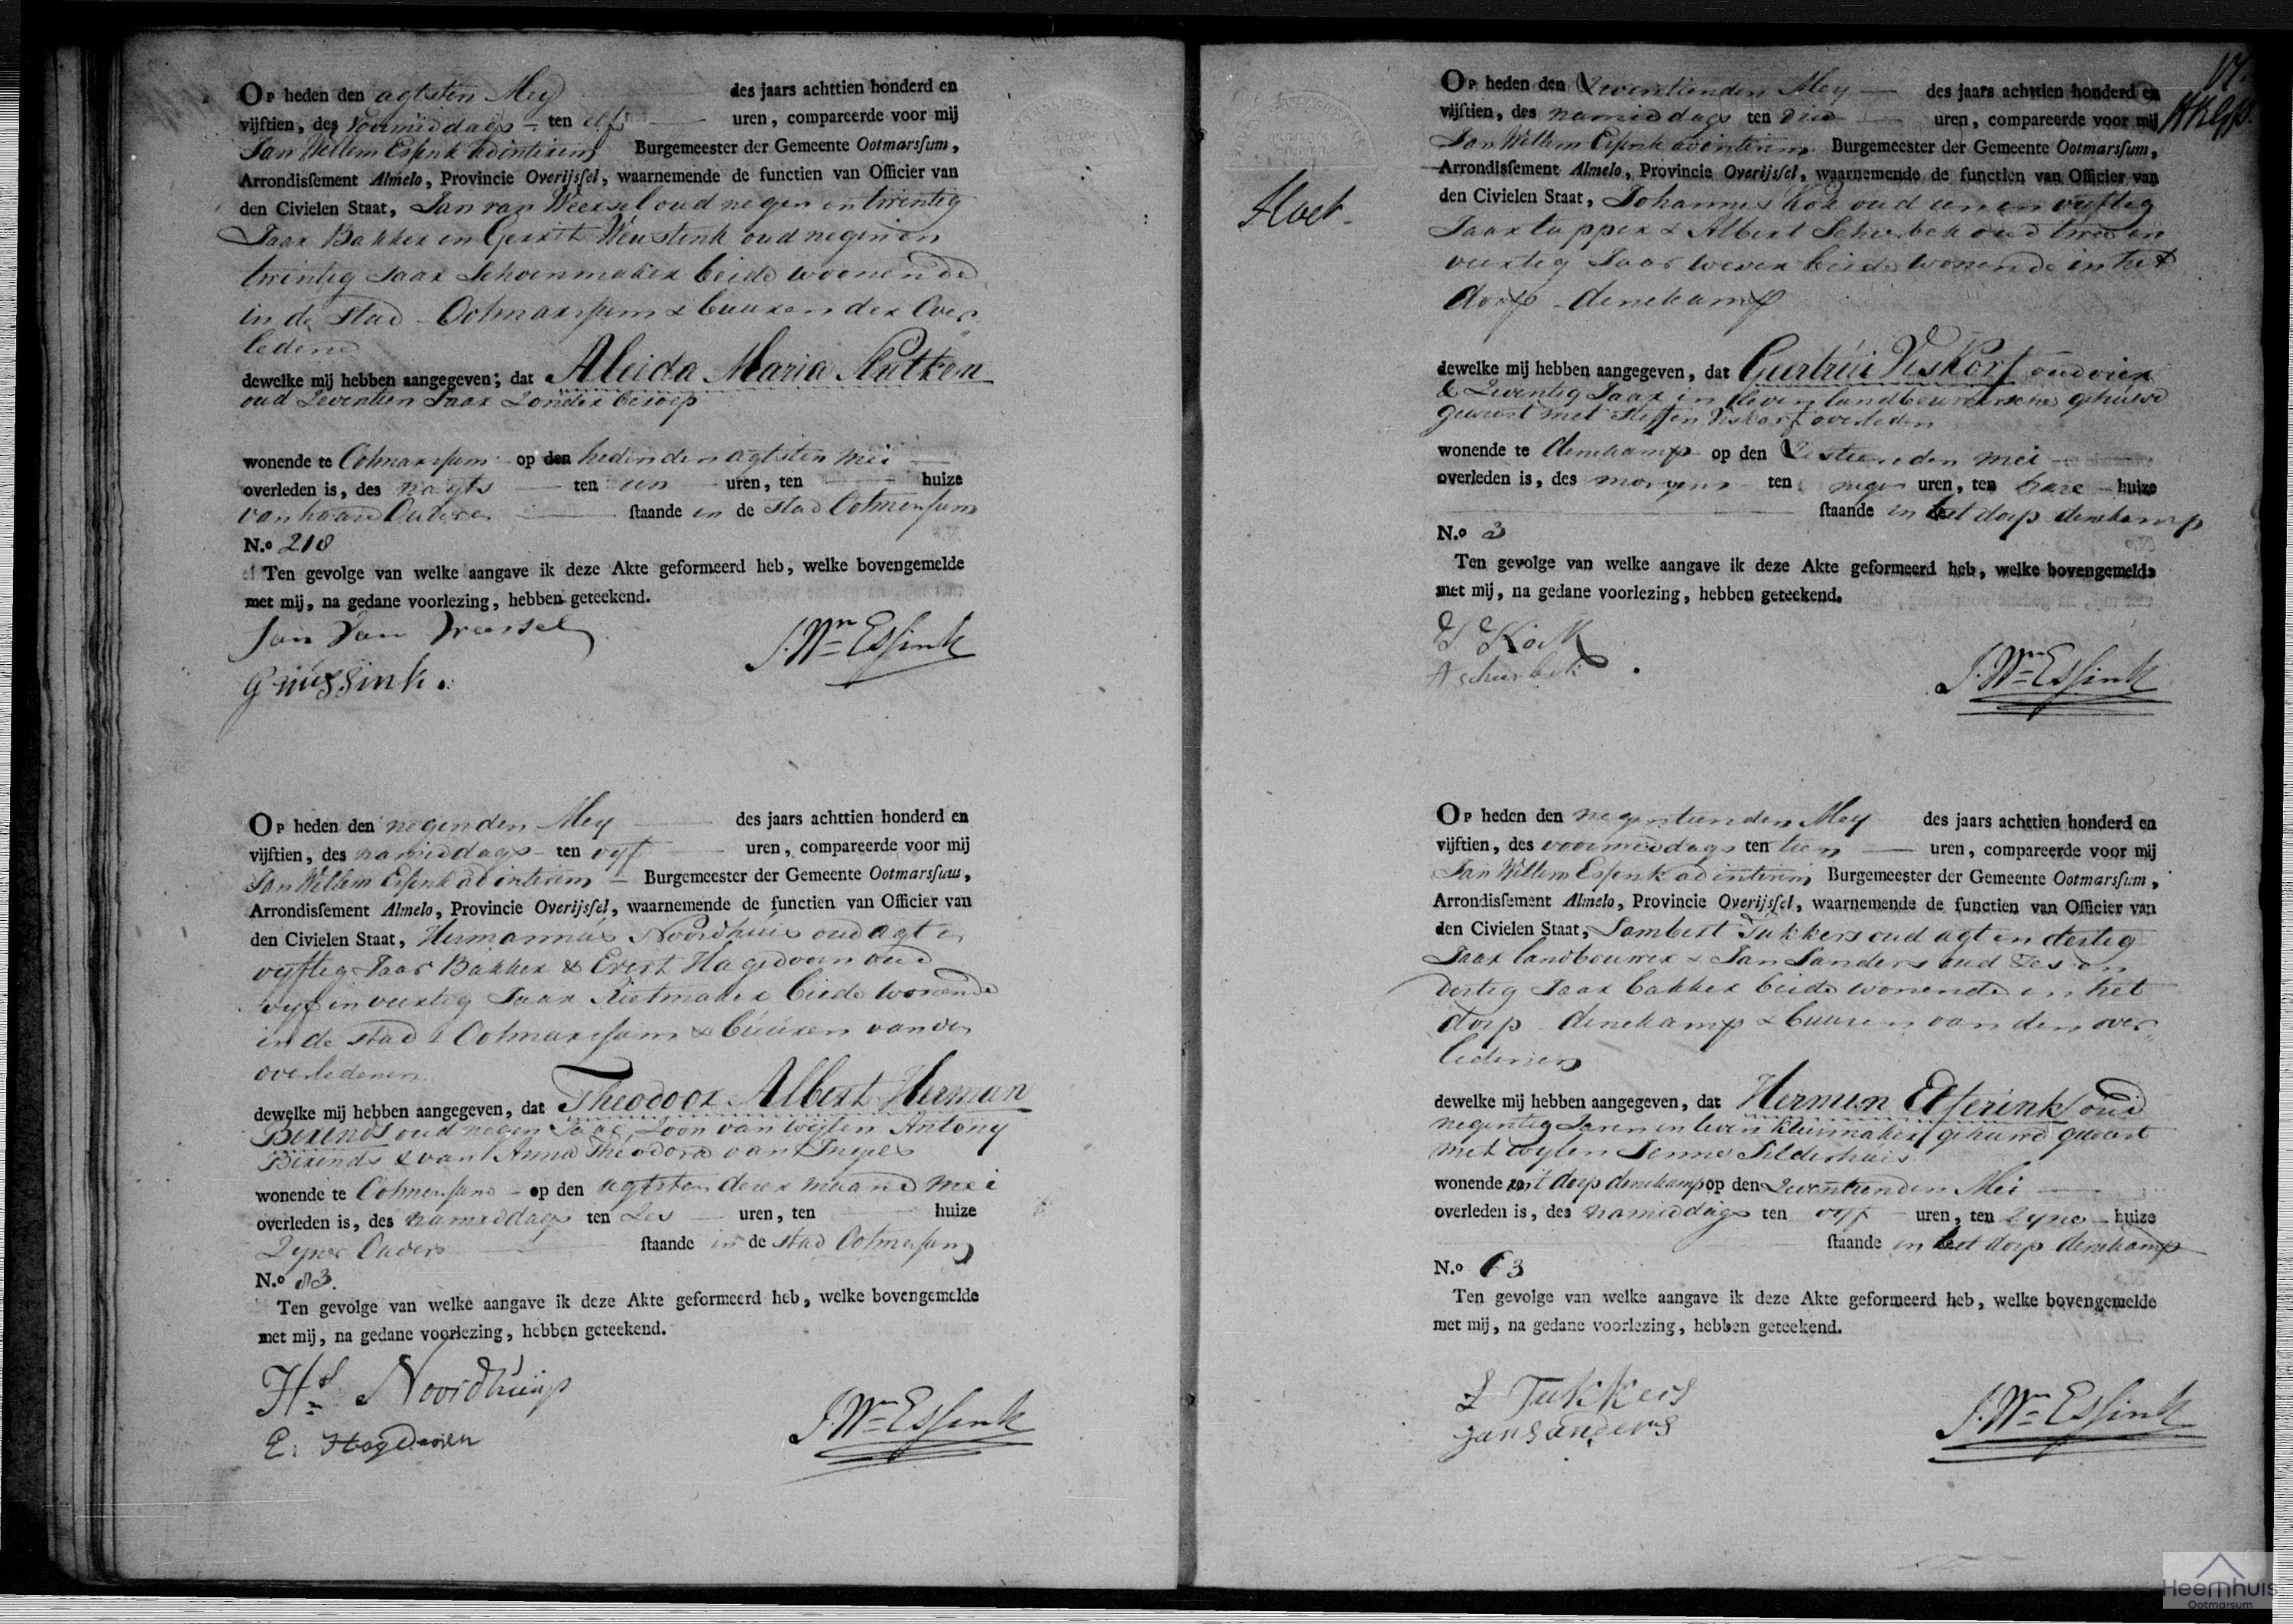 Op heden den agtsten Mey des jaars achttien honderd en
vijftien, des Voormiddags ten elf uren, compareerde voor mij
Jan Willem Essink ad interim Burgemeester der Gemeente Ootmarssum,
Arrondissement Almelo, Provincie Overijssel, waarnemende de functien van Officier van
den Civielen Staat, Jan van Weersel oud negen en twintig
Jaar Bakker en Gerrit oud negen en
twintig Jaar Schoenmaker beide woonende
in de Stad Ootmarssum & buuren der Over
ledene
dewelke mij hebben aangegeven; dat Aleida Maria
oud Zeventien Jaar Zonder beroep
wonende te Ootmarssum op den heden den agtsten Mei
overleden is, des nagts ten een uren, ten huize
van haare Ouders staande in de Stad Ootmarssum
N.o 218
Ten gevolge van welke aangave ik deze Akte geformeerd heb, welke bovengemelde
met mij, na gedane voorlezing, hebben geteekend.
Jan Van Weersel
J. Wm Essink
Op heden den negenden Mey des jaars achttien honderd en
vijftien, des namiddags ten vyf uren, compareerde voor mij
Jan Willem Essink ad interim Burgemeester der Gemeente Ootmarssum,
Arrondissement Almelo, Provincie Overijssel, waarnemende de functien van Officier van
den Civielen Staat, Hermannus Noordhuis oud agt en
vyftig Jaar Bakker & Evert Hagedoorn oud
vyf en veertig Jaar Rietmaker beide wonende
in de stad Ootmarssum & buuren van den
overledenen
dewelke mij hebben aangegeven, dat Theodoor Albert Herman
Berends oud negen Jaar, Zoon van wylen Antony
Berends & van Anna Theodora van
wonende te Ootmarssum op den agtsten dezer maand Mei
overleden is, des namiddags ten Zes uren, ten huize
Zyner Ouders staande in de stad Ootmarssum
N.o 83.
Ten gevolge van welke aangave ik deze Akte geformeerd heb, welke bovengemelde
met mij, na gedane voorlezing, hebben geteekend.
Hs Noordhuis
E. Hagedoorn
J. Wm Essink
Op heden den Zeventienden Mey des jaars achttien honderd en
vijftien, des namiddags ten drie uren, compareerde voor mij
Jan Willem Essink ad interim Burgemeester der Gemeente Ootmarssum,
Arrondissement Almelo, Provincie Overijssel, waarnemende de functien van Officier van
den Civielen Staat, Johannes Kok oud een en vyftig
Jaar tapper & Albert Scheurbek oud twee en
veertig Jaar wever beide wonende in het
dorp denekamp
dewelke mij hebben aangegeven, dat Geertrui Viskorf oud vier
& Zeventig Jaar in leven landbouwersche gehuwd
geweest met Steffen Viskorf overleden
wonende te denekamp op den Zestienden Mei
overleden is, des morgens ten negen uren, ten hare huize
staande in het dorp denekamp
N.o 3
Ten gevolge van welke aangave ik deze Akte geformeerd heb, welke bovengemelde
met mij, na gedane voorlezing, hebben geteekend.
J Kok
A scheurbek
J. Wm Essink
Op heden den negentienden Mey des jaars achttien honderd en
vijftien, des voormiddags ten tien uren, compareerde voor mij
Jan Willem Essink ad interim Burgemeester der Gemeente Ootmarssum,
Arrondissement Almelo, Provincie Overijssel, waarnemende de functien van Officier van
den Civielen Staat, Lambert Tukkers oud agt en dertig
Jaar landbouwer & Jan Sanders oud Zes en
dertig Jaar bakker beide wonende in het
dorp denekamp & buuren van den over
ledenen
dewelke mij hebben aangegeven, dat Hermen Elferink oud
negentig Jaren in leven gehuwd geweest
met wylen Jenne Pelderhuis
wonende in't dorp denekamp op den Zeventienden Mei
overleden is, des namiddags ten vyf uren, ten Zyne huize
staande in het dorp denekamp
N.o 63
Ten gevolge van welke aangave ik deze Akte geformeerd heb, welke bovengemelde
met mij, na gedane voorlezing, hebben geteekend.
L Tukkers
jan sanders
J. Wm Essink
Heemhuis
Ootmarsum